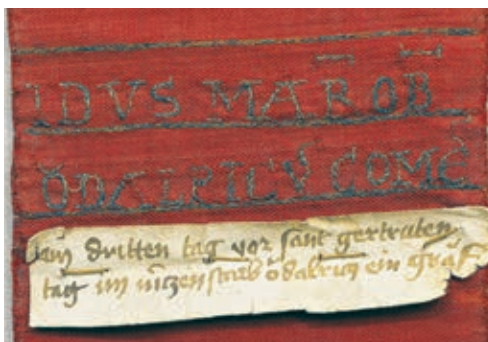 IDVS MAR̄ OB̄
ŎDALRICV̄ COMĒ
Am dritten tag vor sant gertruten
tag im starb ŏdalrich ein graf